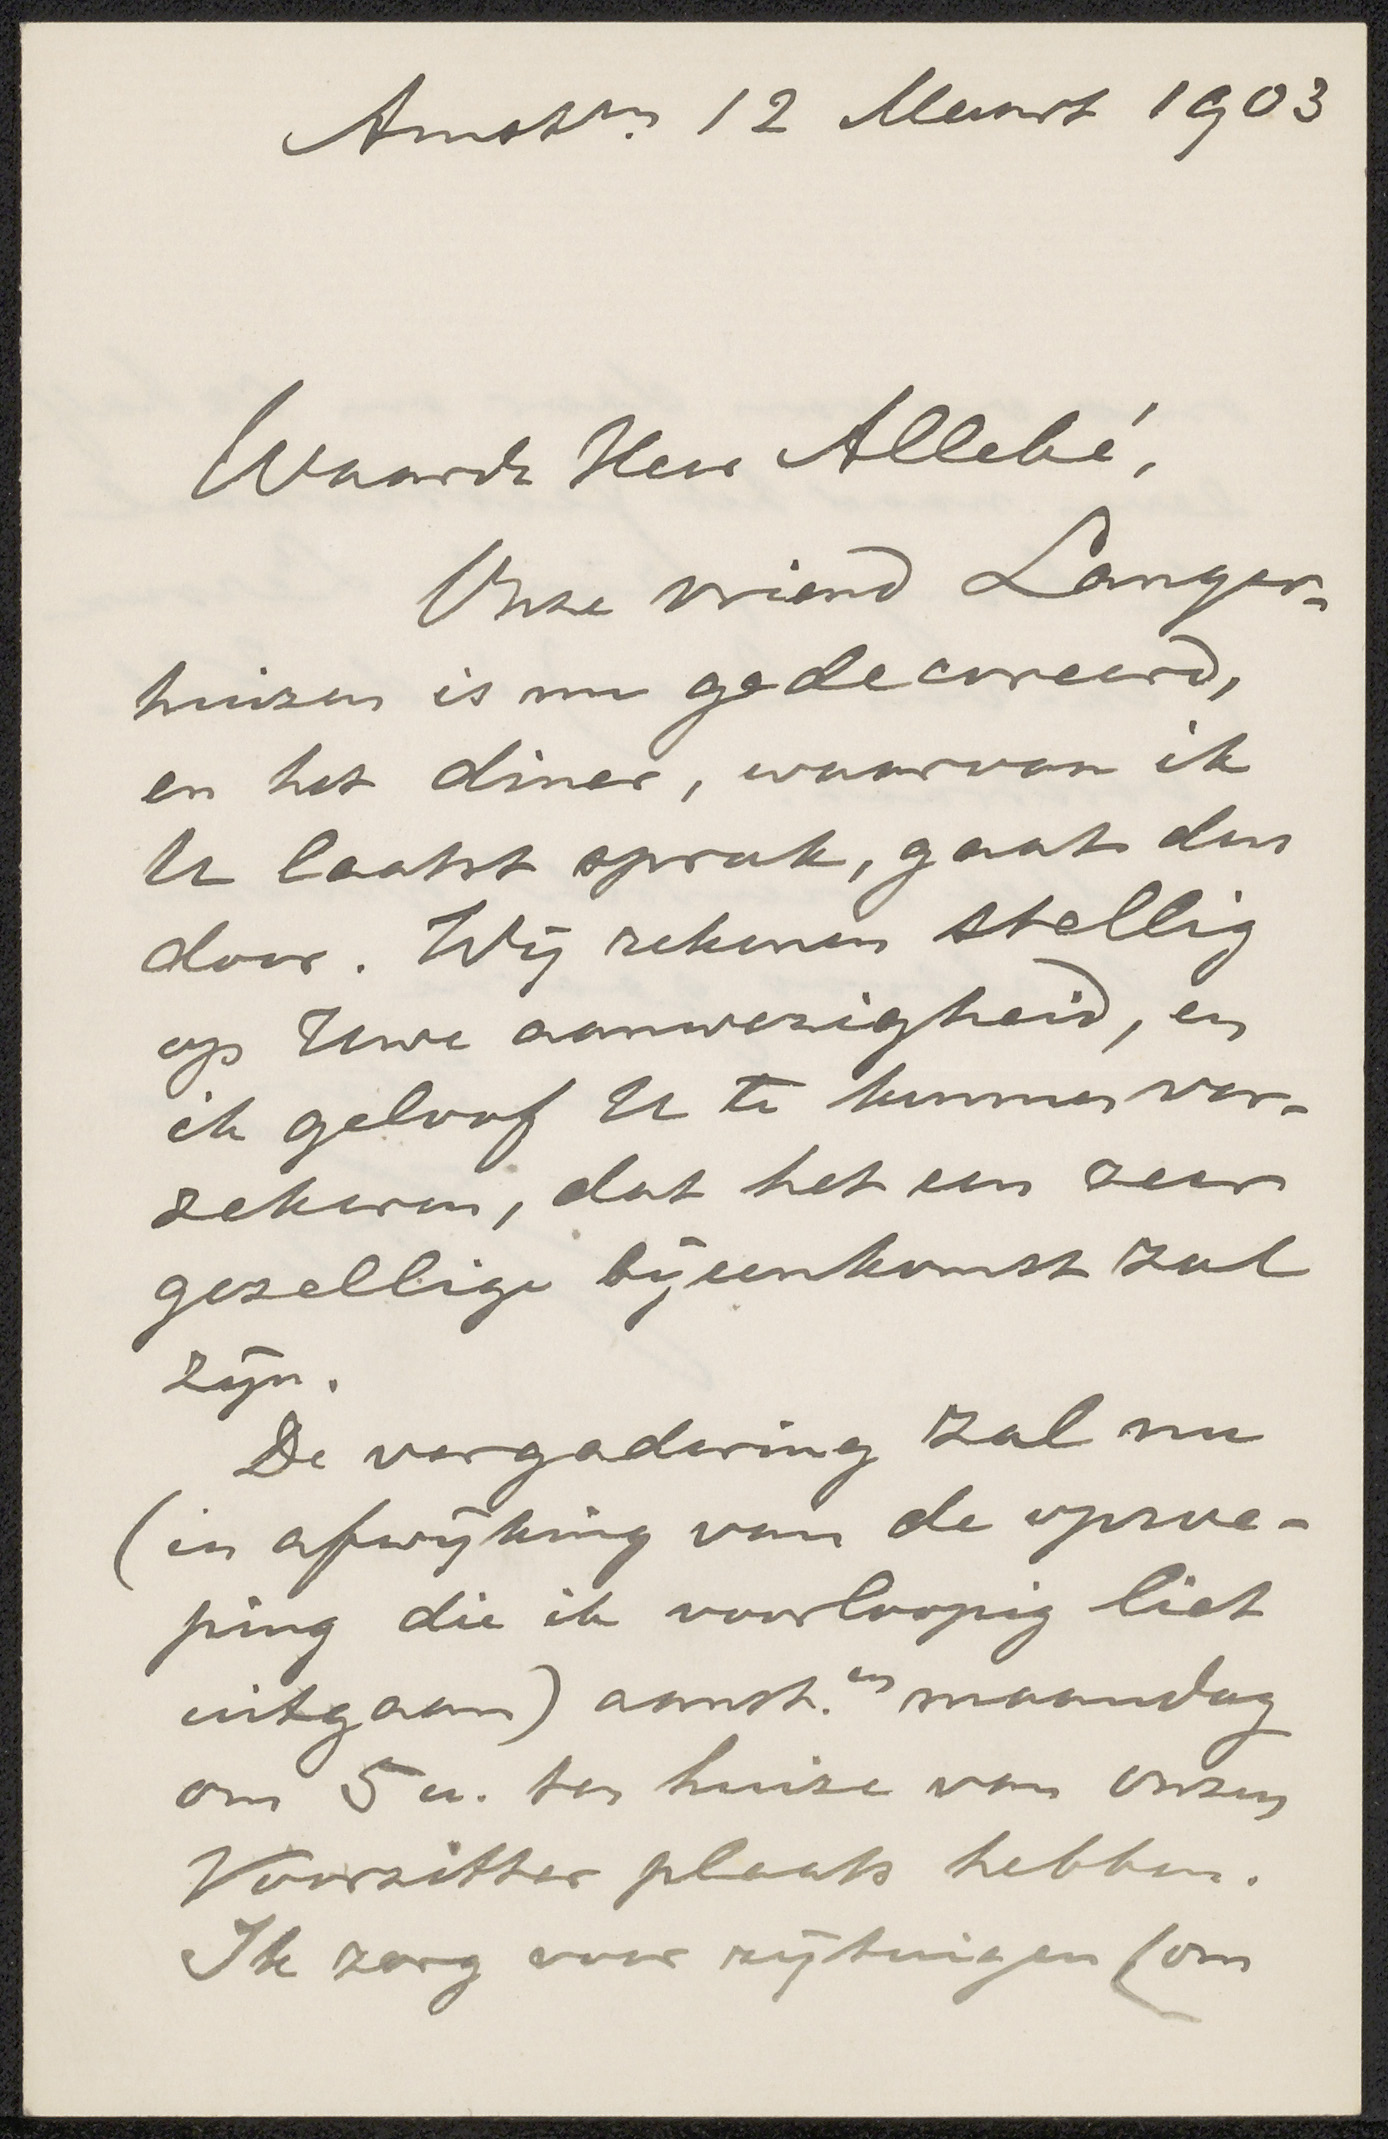 Amstm. 12 Maart 1903
Waarde Heer Allebé,
Onze vriend Langer-
huizen is nu gedecoreerd,
en het diner, waarvan ik
U laatst sprak, gaat dus
door. Wij rekenen stellig
op Uwe aanwezigheid, en
ik geloof U te kunnen ver-
zekeren, dat het een zeer
gezellige bijeenkomst zal
zijn.
De vergadering zal nu
(in afwijking van de oproe-
ping die ik voorloopig liet
uitgaan) aanst.en maandag
om 5 u. ten huize van onzen
Voorzitter plaats hebben.
Ik zorg voor rijtuigen (om